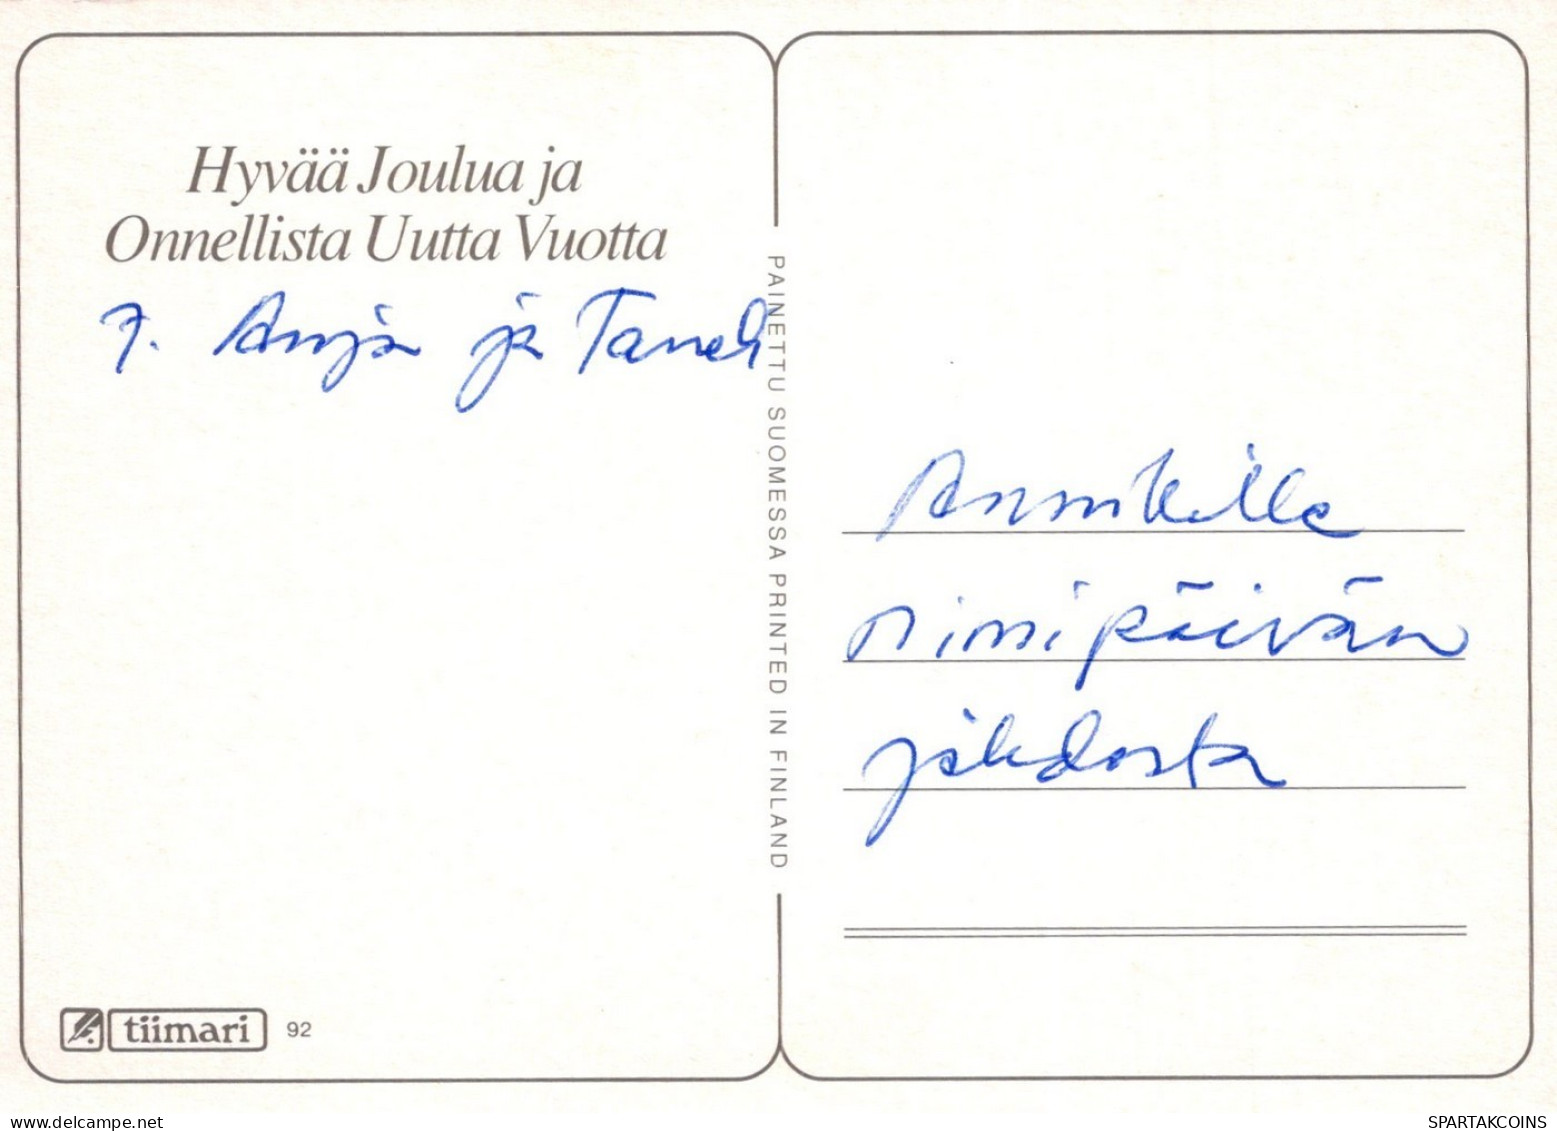 Hyvää Joulua ja
Onnellista Uutta Vuotta
T. Anja ja Taneli
PAINETTU SUOMESSA PRINTED IN FINLAND
Annikille
nimipäivän
johdosta
tiimari 92
SPARTAKCOINS